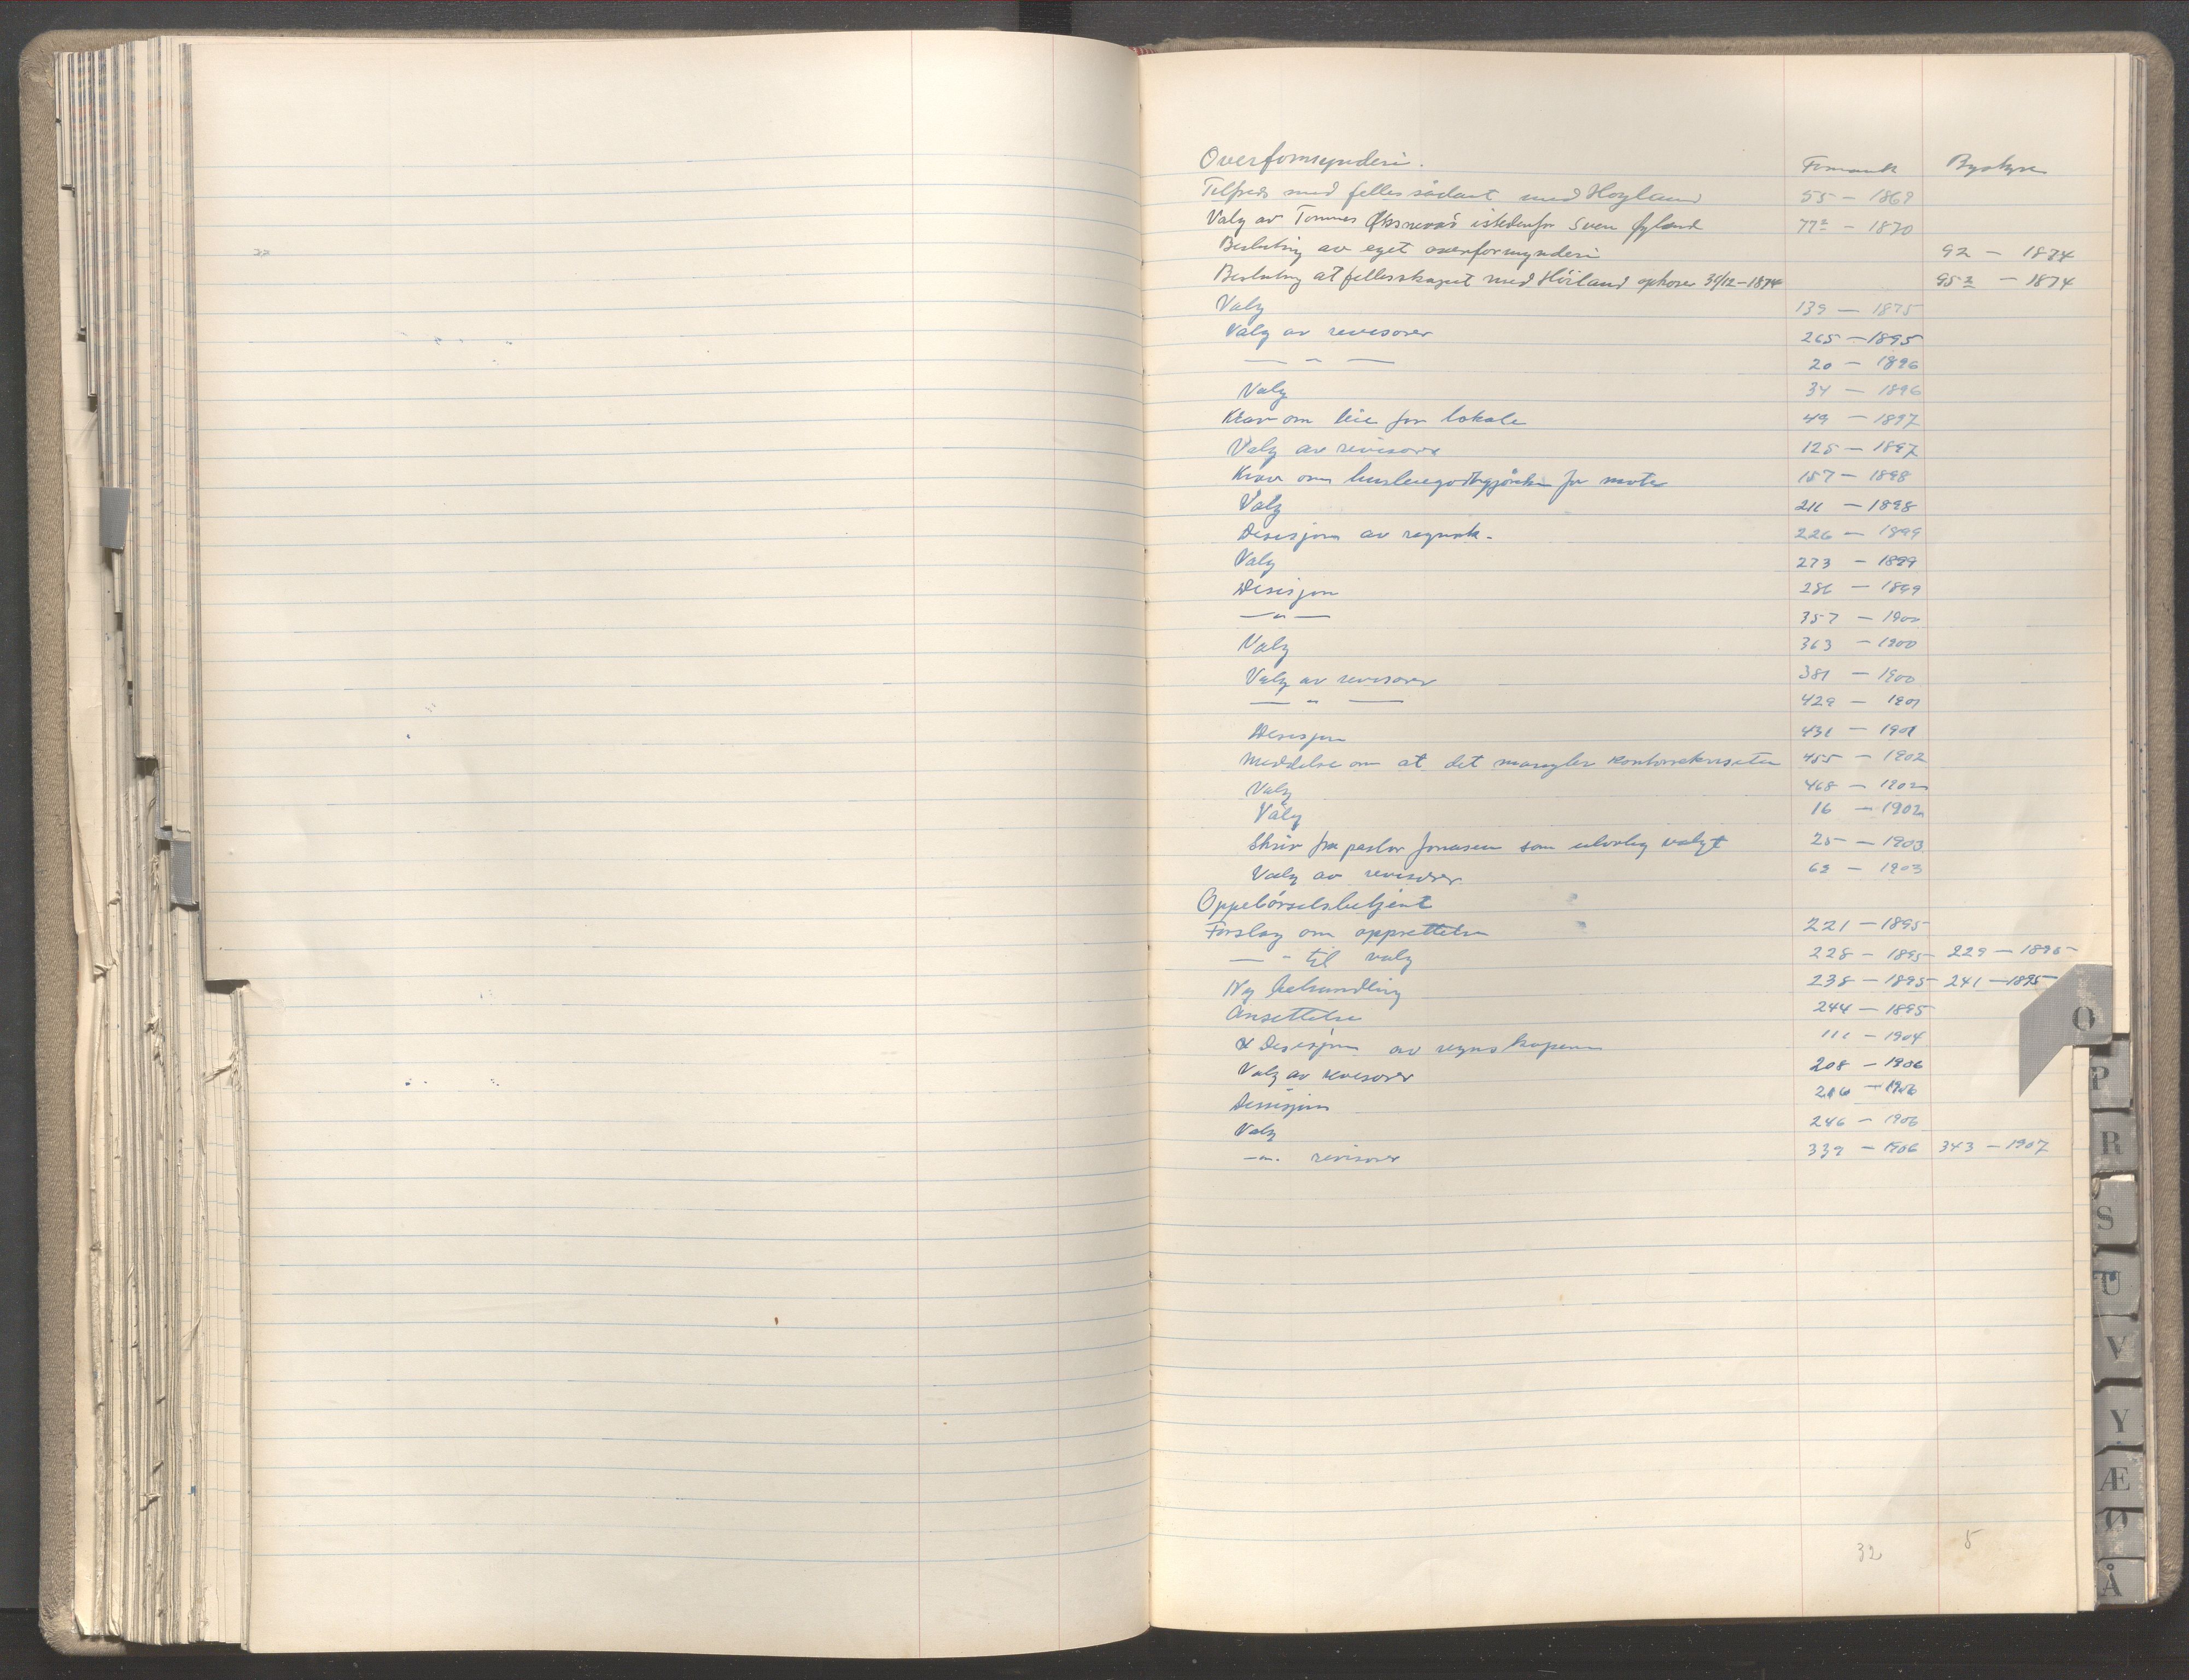 Overformynderi. Formannsk Bystyre
Tilfreds med felles sådant med Høyland 55 - 1869
Valg av Tønnes Øksnevad istedenfor Sven Lyland 77² - 1870
Beslutning av eget overformynderi 92 - 1874
Beslutning at fellesskapet med Höiland ophører 31/12-1874 95² - 1874
Valg 139 - 1875
Valg av revisorer 265 - 1895
— " — 20 - 1896
Valg 34 - 1896
Krav om leie for lokale 49 - 1897
Valg av revisorer 125 - 1897
Krav om husleiegodtgjørelse for møter 157 - 1898
Valg 211 - 1898
Desisjon av regnsk. 226 - 1899
Valg 273 - 1899
Desisjon 286 - 1899
— " — 357 - 1900
Valg 363 - 1900
Valg av revisorer 381 - 1900
— " — 429 - 1901
Desisjon 431 - 1901
Meddelse om at det mangler kontorrekvisiter 455 - 1902
Valg 468 - 1902
Valg 16 - 1902
Skriv fra pastor Jonassen som ulovlig valgt 25 - 1903
Valg av revisorer 62 - 1903
Oppebörselsbetjent
Forslag om opprettelse 221 - 1895
— " til valg 228 - 1895 229 - 1895
Ny behandling 238 - 1895 241 - 1895
Ansettelse 244 - 1895
Desisjon av regnskapene 111 - 1904
Valg av revisorer 208 - 1906
Desisjon 216 - 1906
Valg 246 - 1906
— " . revisorer 339 - 1906 343 - 1907
32 5
O
P
R
S
U
V
Y
Æ
Ø
Å